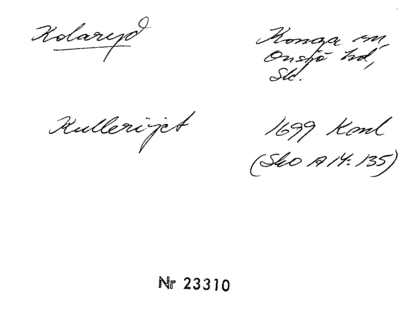 Kolaryd Konga sn,
Onsjö hd,
Sk.
Kullerijet 1699 Konl
(SkO A 14: 135)
Nr 23310